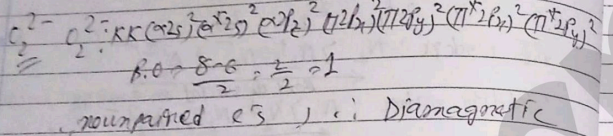 O₂²⁻ O₂²⁻: KK(σ2s)²(σ*2s)²(σ2Pz)²(π2Px)²(π2Py)²(π*2Px)²(π*2Py)²
B.O = 8-6/2 = 2/2 = 1
no unpaired e's, ∴ Diamagnetic